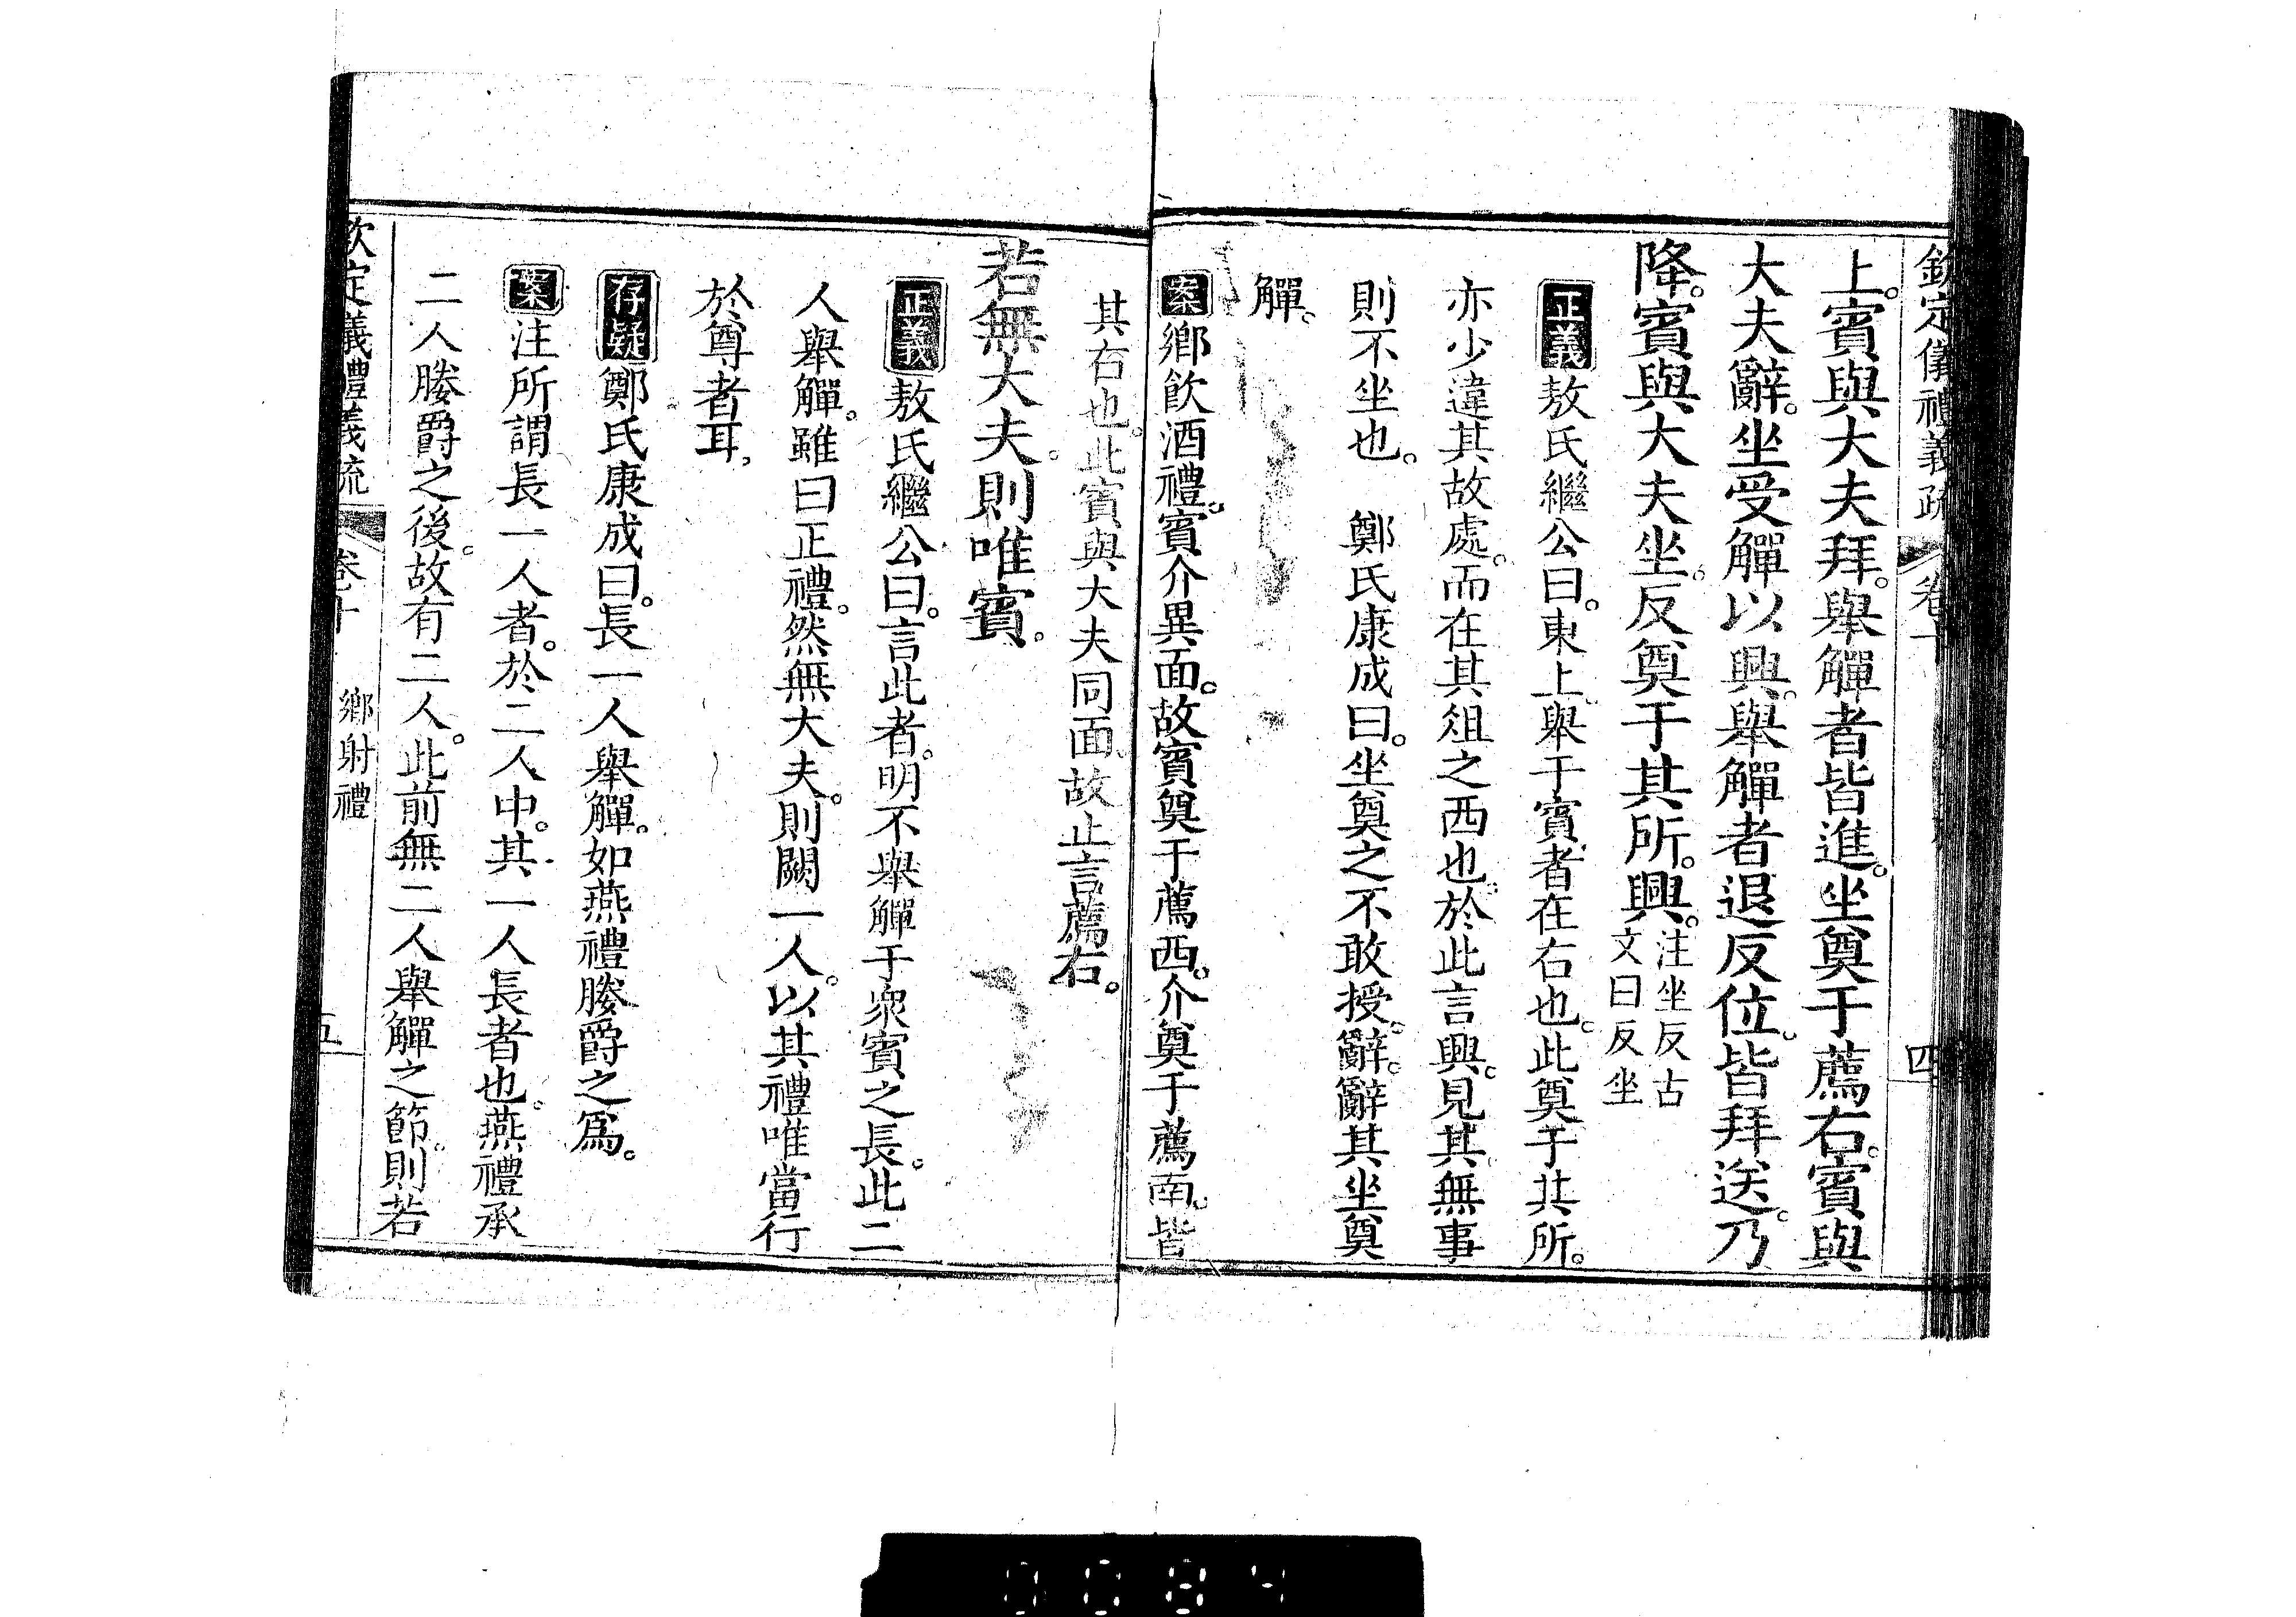 欽定儀禮義疏 卷十 四
上。賓與大夫拜。舉觶者皆進。坐奠于薦右。賓與
大夫辭。坐受觶以興。舉觶者退反位。皆拜送。乃
降。賓與大夫坐。反奠于其所。興。注坐反古
文曰反坐
正義敖氏繼公曰。東上。舉于賓者在右也。此奠于其所。
亦少違其故處。而在其俎之西也。於此言興。見其無事
則不坐也。 鄭氏康成曰。坐奠之不敢授。辭。辭其坐奠
觶。
案鄉飲酒禮。賓介異面。故賓奠于薦西。介奠于薦南。皆
其右也。此賓與大夫同面。故止言薦右。
若無大夫。則唯賓。
正義敖氏繼公曰。言此者。明不舉觶于衆賓之長。此二
人舉觶。雖曰正禮。然無大夫。則闕一人。以其禮唯當行
於尊者耳。
存疑鄭氏康成曰。長一人舉觶。如燕禮媵爵之爲。
案注所謂長一人者。於二人中。其一人長者也。燕禮承
二人媵爵之後。故有二人。此前無二人舉觶之節。則若
欽定儀禮義疏 卷十 鄉射禮 五
0084